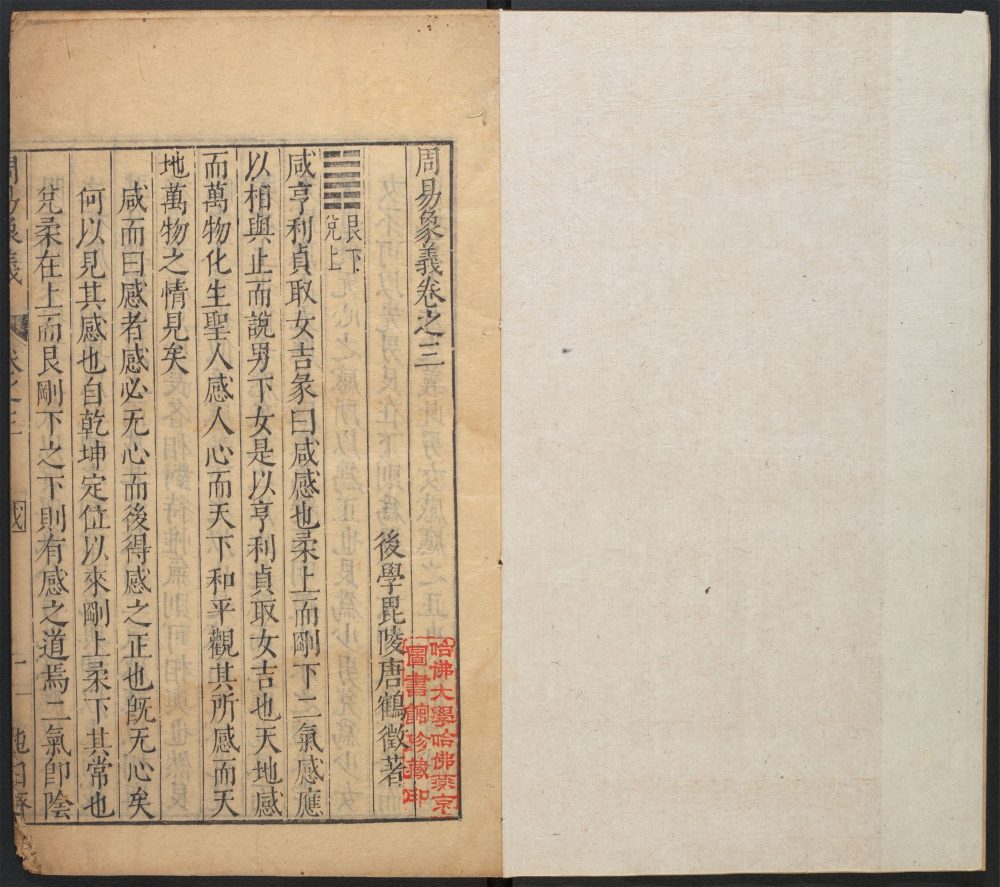 周易象義卷之三
後學毘陵唐鶴徵著
艮下
兌上
咸亨利貞取女吉彖曰咸感也柔上而剛下二氣感應
以相與止而說男下女是以亨利貞取女吉也天地感
而萬物化生聖人感人心而天下和平觀其所感而天
地萬物之情見矣
咸而曰感者感必无心而後得感之正也旣无心矣
何以見其感也自乾坤定位以來剛上柔下其常也
兌柔在上而艮剛下之下則有感之道焉二氣卽陰
周易象義
卷之三
咸
一
哈佛大學哈佛燕京
圖書館珍藏印